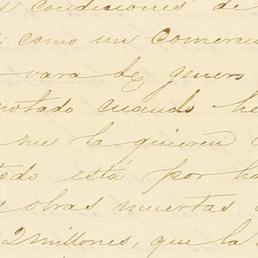 condiciones de
como un Comerci
vara de genero
notado cuando he
me la quieren
todo está por ha
obras muertas
2 millones, que la